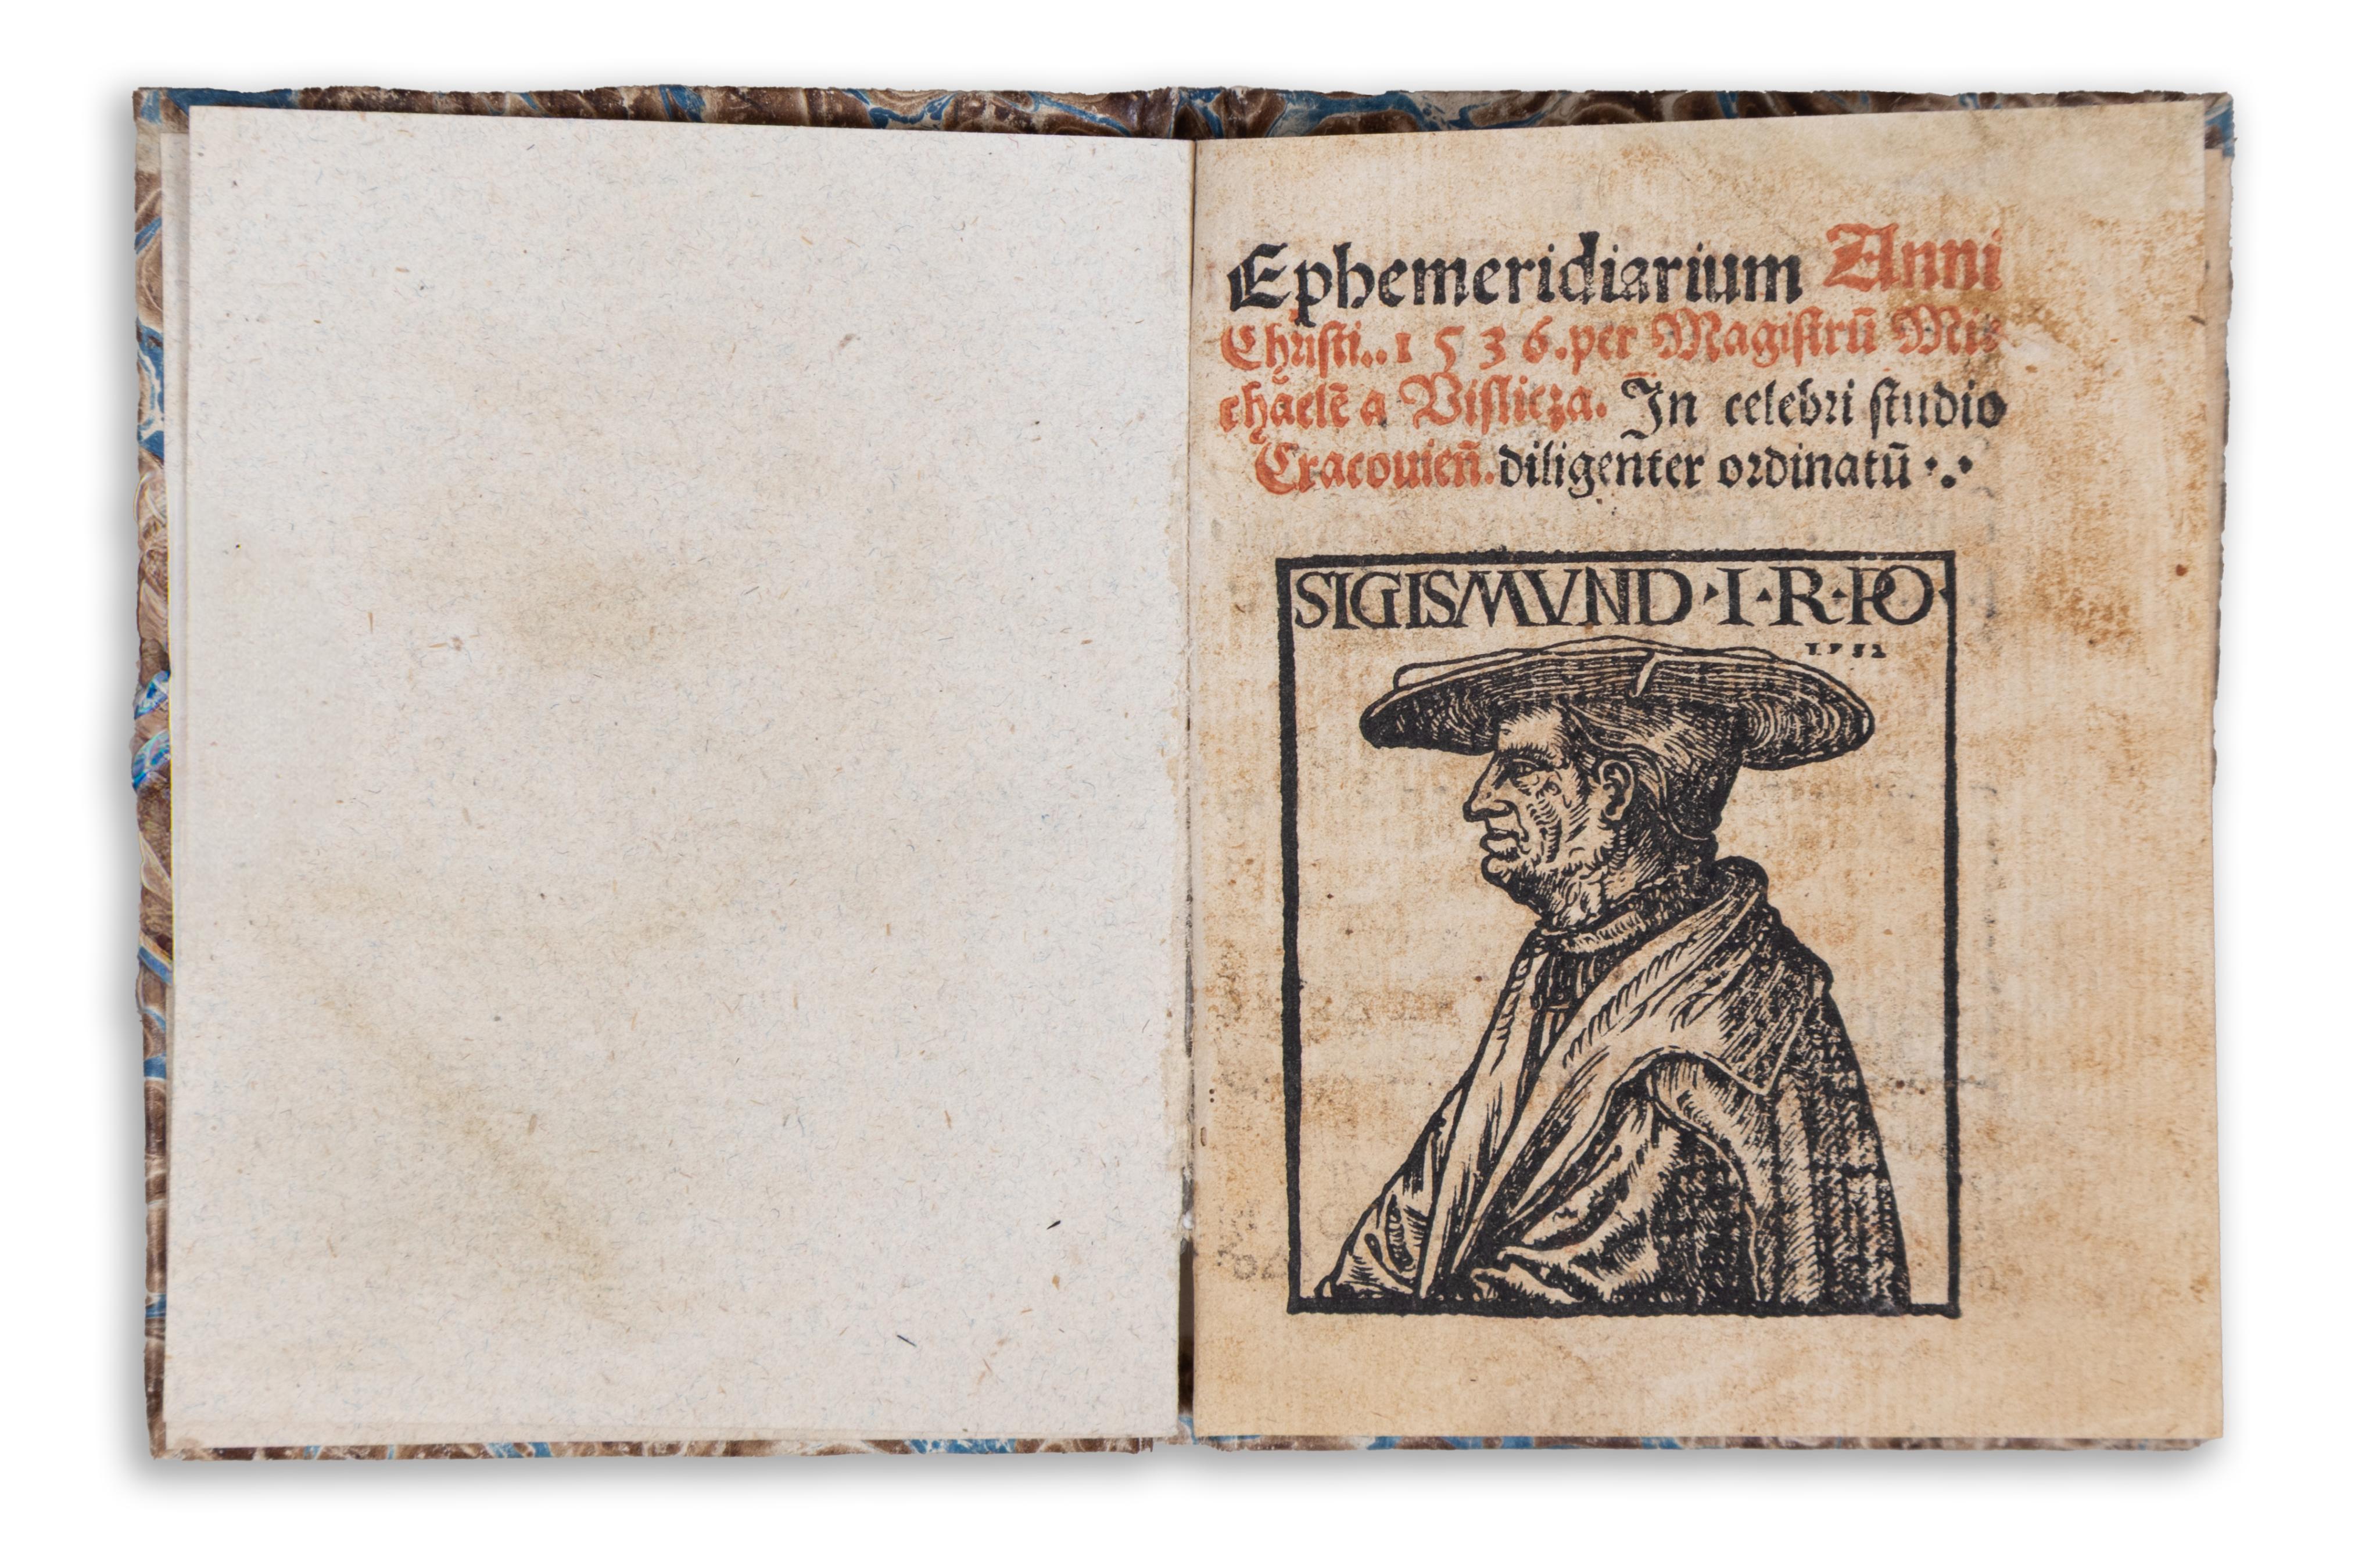 Ephemeridiarium Anni
Chriſti..1536.per Magiſtrū Mi⸗
chaelē a Viſlicza. In celebri ſtudio
Cracouieñ.diligenter ordinatū ·.·
SIGISMVND·I·R·PO·